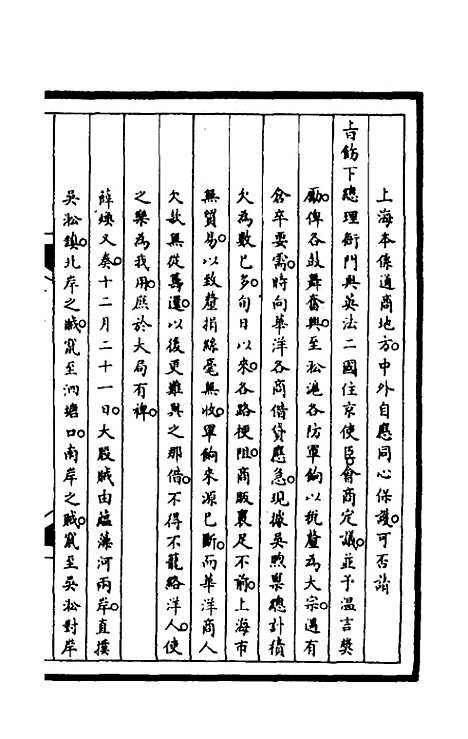 上海本係通商地方。中外自應同心保護。可否請
旨飭下總理衙門與英法二國住京使臣會商定議。並予溫言獎
勵。俾各鼓舞奮興。至松滬各防軍餉。以稅釐為大宗。遇有
倉卒要需。時向華洋各商借貸應急。現據吳煦稟。總計積
欠為數已多。旬日以來。各路梗阻。商販裹足不前。上海市
無貿易。以致釐捐絲毫無收。軍餉來源已斷。而華洋商人
欠款無從籌還。以後更難與之那借。不得不籠絡洋人。使
之樂為我用。庶於大局有裨。
薛煥又奏。十二月二十一日。大股賊由蕰藻河兩岸。直撲
吳淞鎮。北岸之賊。竄至泗塘口。南岸之賊。竄至吳淞對岸